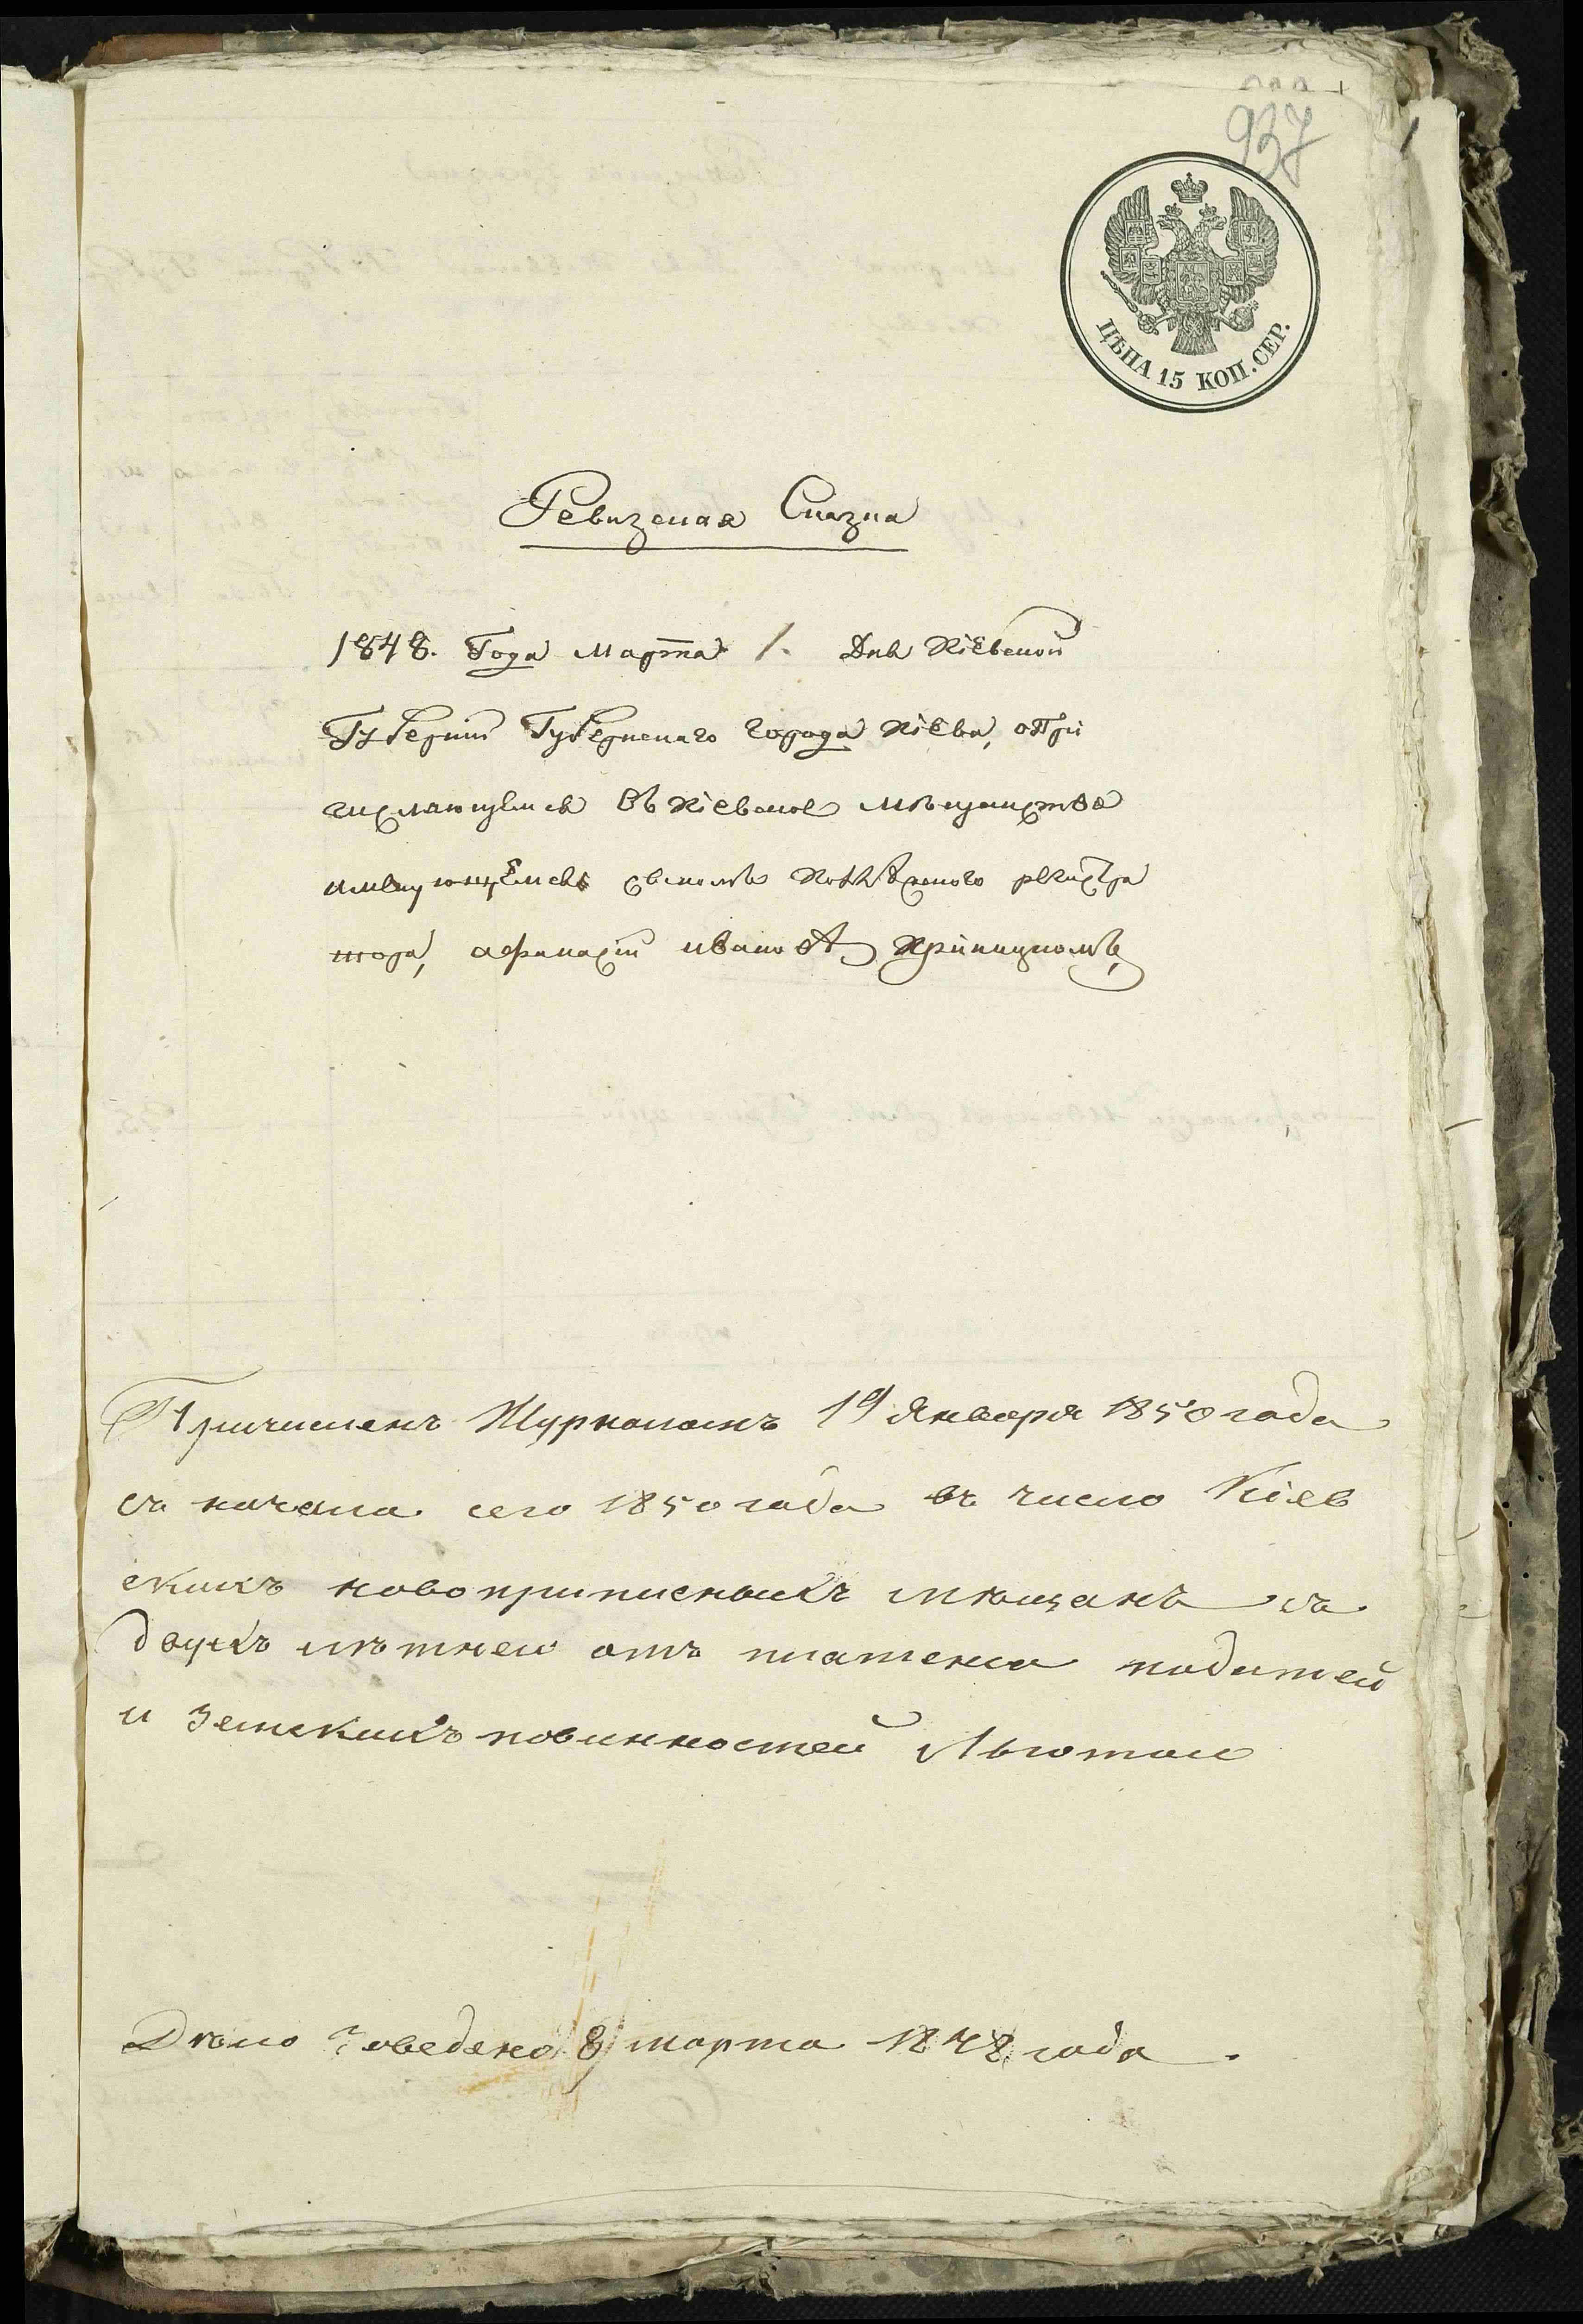 937
ЦѢНА 15 КОП. СЕР.
Ревизская Сказка
1848. Года Марта 1. Дня Кіевской
Губерніи Губернскаго города Кіева, о При
числяющемся въ Кіевское мѣщанство
именующемся сыномъ Колѣжского регистра
тора, афанасіи иванов Криницкомъ,
Причисленъ Журналомъ 19 Января 1850 года
съ начала сего 1850 года въ число Кіев
скихъ новоприписныхъ мѣщанъ съ
двухъ лѣтнею отъ платежа податей
и Земскихъ повинностей Льготою
Дѣло заведено 8 марта 1848 года.